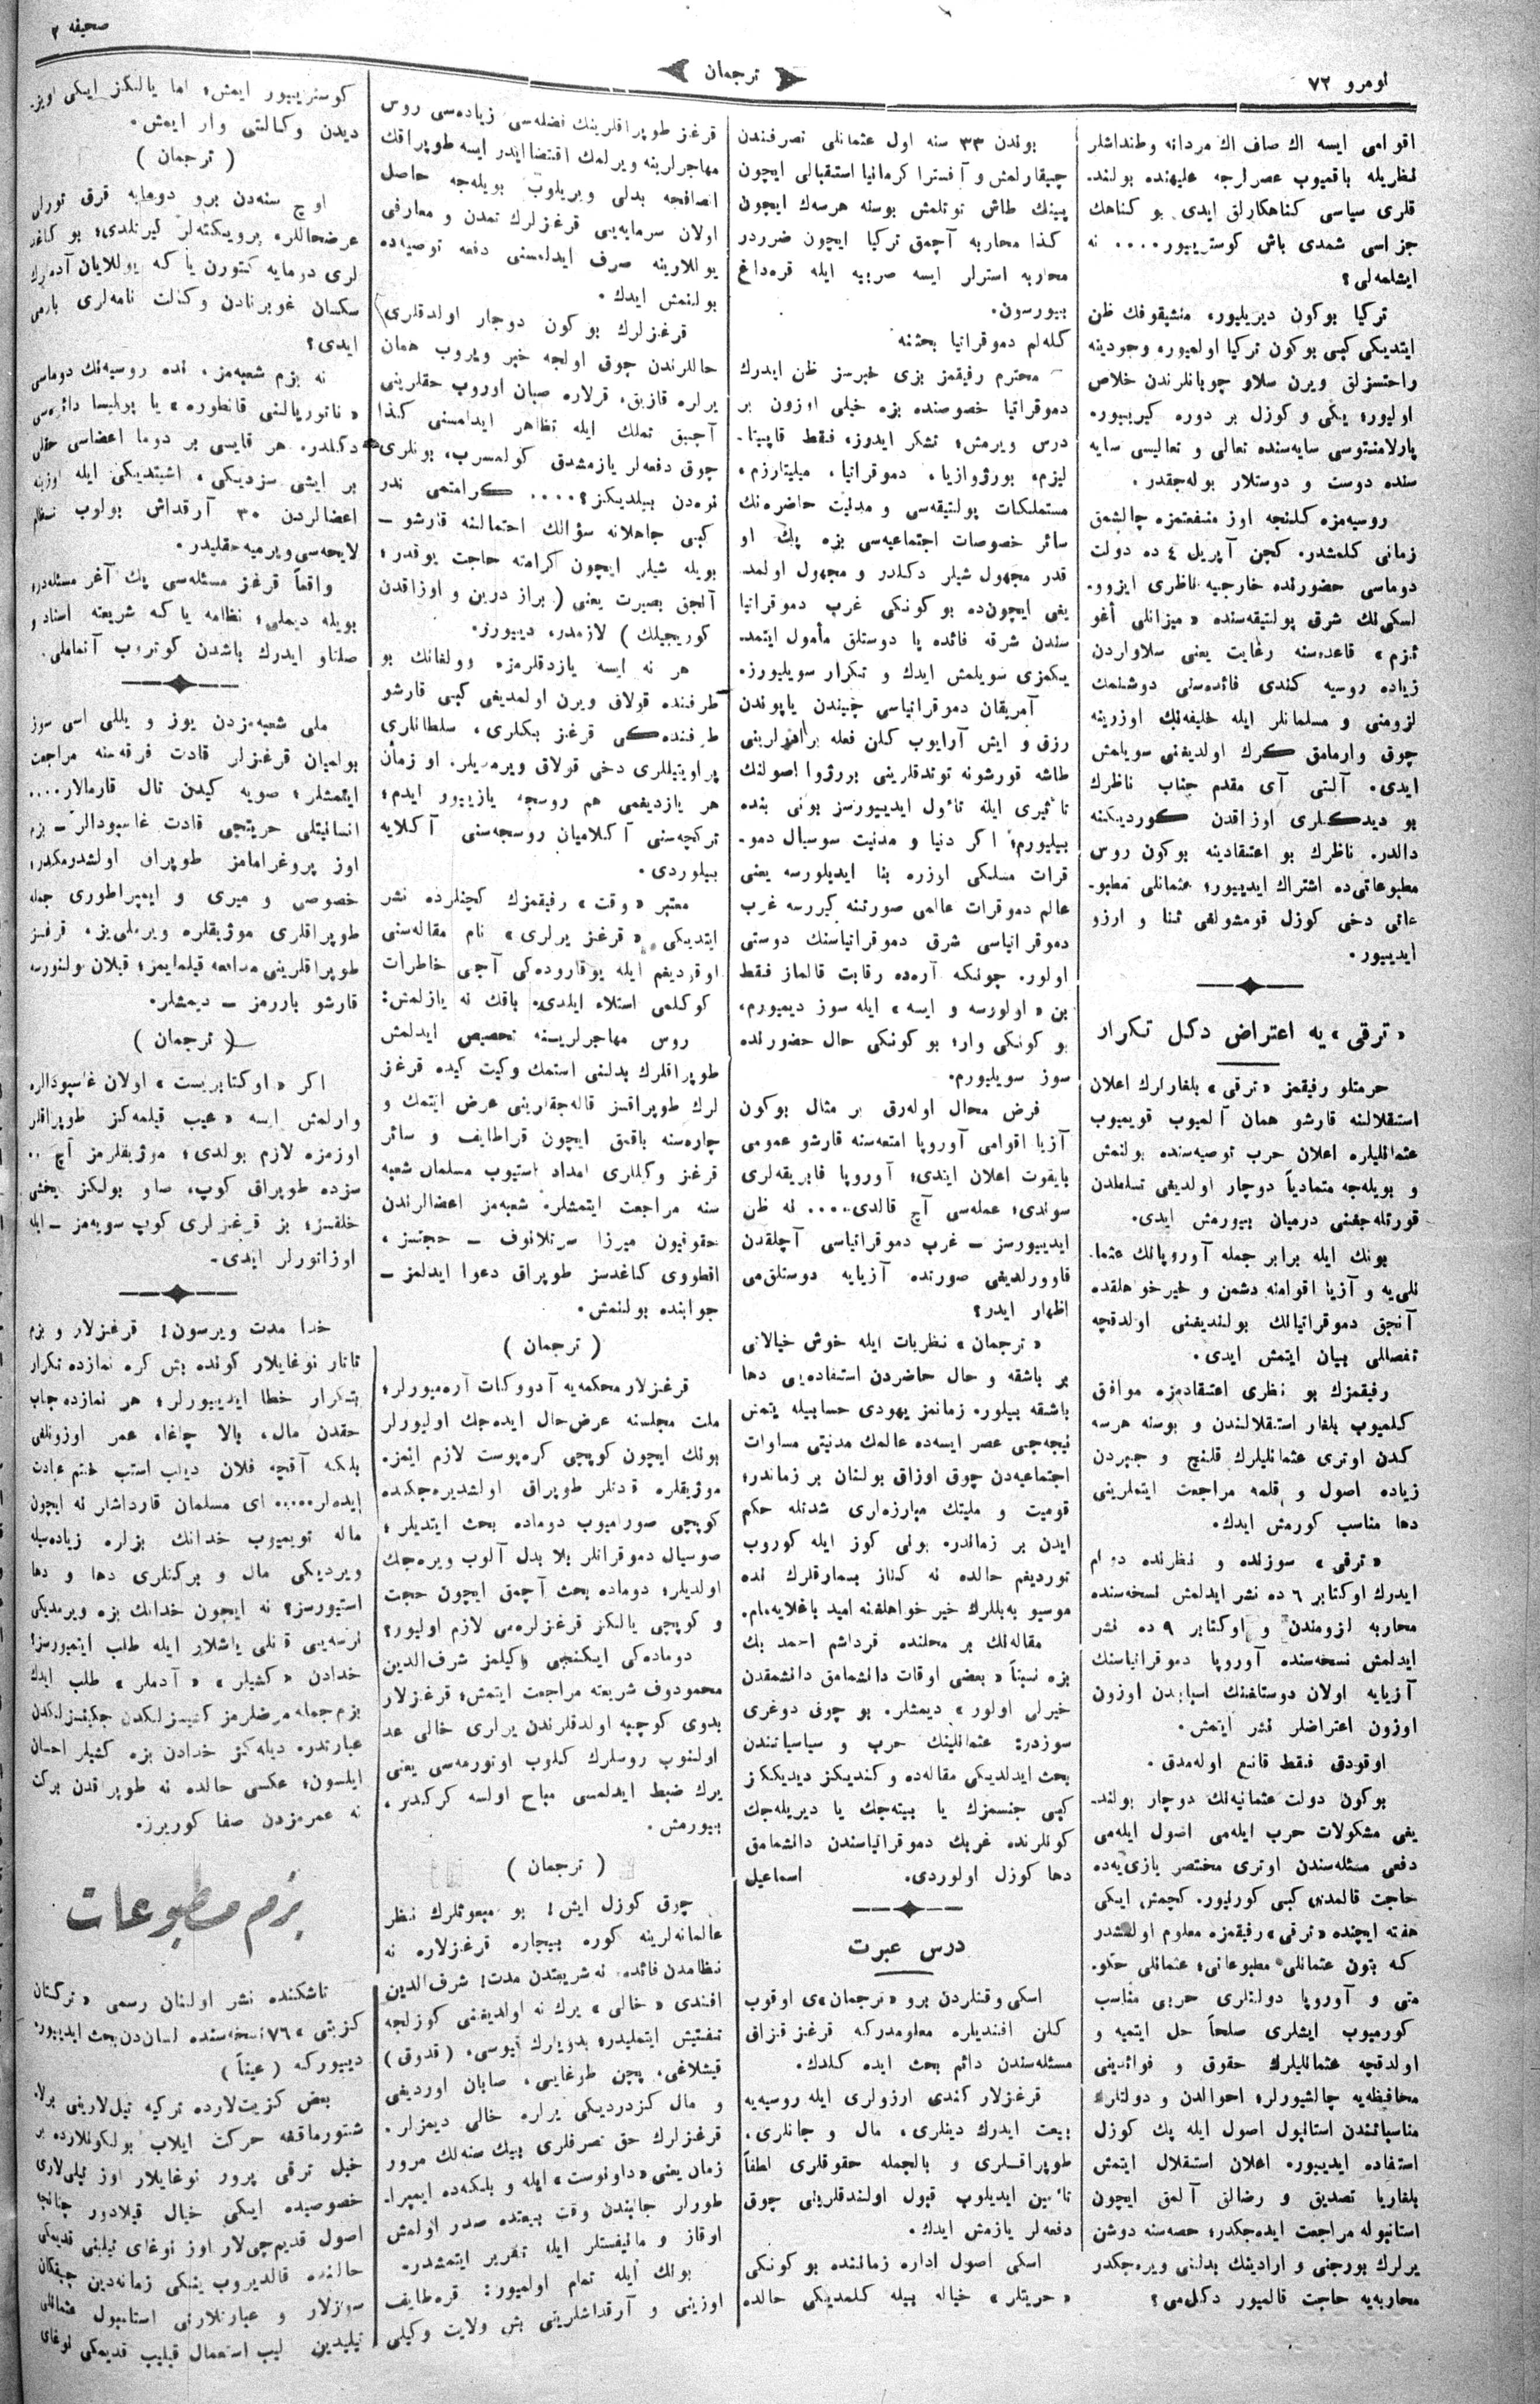 نومرو ٧٢
ترجمان
صحیفه ٢
اقوامی ایسه اك صاف اك مردانه وطنداشلر
نظریله باقمیوب عصرلرجه علیهنده بولند۔
قلری سیاسی کناهکارلق ایدی بو کناهك
جزاسی شمدی باش کوستریییور.... نه
ایشلمه‌لی؟
ترکیا بوکون دیریلیور، منشیقوفك ظن
ایتدیکی کبی بوکون ترکیا اولمیور، وجودینه
راحتسزلق ویرن سلاو چوبانلرندن خلاص
اولیور؛ یکی و کوزل بر دوره کیرییور.
پارلامنتوسی سایه‌سنده تعالی و تعالیسی سایه
سنده دوست و دوستلار بوله‌جقدر.
روسیه‌مزه کلنجه اوز منفعتمزه چالشمق
زمانی کلمشدر. کچن آپریل ٤ ده دولت
دوماسی حضورنده خارجیه ناظری ایزوو۔
لسکی‌نك شرق پولتیقه‌سنده «میزانلی أغو
ئیزم» قاعده‌سنه رغایت یعنی سلاواردن
زیاده روسیه کندی فائده‌سنی دوشنمك
لزومنی و مسلمانلر ایله خلیفه‌نك اوزرینه
چوق وارمامق کرك اولدیغنی سویلمش
ایدی. آلتی آی مقدم جناب ناظرك
بو دیدکلری اوزاقدن کوردیکنه
دالدر. ناظرك بو اعتقادینه بوکون روس
مطبوعاتی‌ده اشتراك ایدییور؛ عثمانلی مطبو۔
عاتی دخی کوزل قومشولغی ثنا و ارزو
ایدییور.
«ترقی»یه اعتراض دکل تکرار
حرمتلو رفیقمز «ترقی» بلغارلرك اعلان
استقلالنه قارشو همان آلمیوب قویمیوب
عثمانلیلره اعلان حرب توصیه‌سنده بولنمش
و بویله‌جه متمادیاً دوچار اولدیغی تسلطدن
قورتله‌جغنی درمیان بیورمش ایدی.
بونك ایله برابر جمله آوروپانك عثما۔
نلی‌یه و آزیا اقوامنه دشمن و خیرخواهلقده
آنجق دموقراتیانك بولندیغنی اولدقچه
تفصللی بیان ایتمش ایدی.
رفیقمزك بو نظری اعتقادمزه موافق
کلمیوب بلغار استقلالندن و بوسنه هرسه
كدن اوتری عثمانلیلرك قلنج و جبردن
زیاده اصول و قلمه مراجعت ایتملرینی
دها مناسب کورمش ایدك.
«ترقی» سوزنده و نظرنده دوام
ایدرك اوکتابر ٦ ده نشر ایدلمش نسخه‌سنده
محاربه لزومندن و اوکتابر ٩ ده نشر
ایدلمش نسخه‌سنده آوروپا دموقراتیاسنك
آزیایه اولان دوستلغنك اسبابدن اوزون
اوزون اعتراضلر نشر ایتمش.
اوقودق فقط قانع اوله‌مدق.
بوکون دولت عثمانیه‌نك دوچار بولند۔
یغی مشکولات حرب ایله‌می اصول ایله‌می
دفعی مسئله‌سندن اوتری مختصر یازی‌یه‌ده
حاجت قالمدی کبی کورلیور. کچمش ایکی
هفته ایچنده «ترقی» رفیقمزه معلوم اولمشدر
که بتون عثمانلی مطبوعاتی؛ عثمانلی حکو۔
متی و آوروپا دولتلری حربی مناسب
کورمیوب ایشلری صلحاً حل ایتمیه و
اولدقچه عثمانلیلرك حقوق و فوائدینی
محافظه‌یه چالشیورلر؛ احوالدن و دولتلر
مناسباتندن استانبول اصول ایله پك کوزل
استفاده ایدییور. اعلان استقلال ایتمش
بلغاریا تصدیق و رضالق آلمق ایچون
استانبوله مراجعت ایده‌جکدر؛ حصه‌سنه دوشن
یرلرك بورجنی و ارادینك بدلنی ویره‌جکدر
محاربه‌یه حاجت قالمیور دکل‌می؟
بوندن ٣٣ سنه اول عثمانلی تصرفندن
چیقارلمش و آفسترا کرمانیا استقبالی ایچون
بینك طاش توتلمش بوسنه هرسك ایچون
کذا محاربه آچمق ترکیا ایچون ضرردر
محاربه استرلر ایسه صربیه ایله قره‌داغ
بیورسون.
کله‌لم دموقراتیا بحثنه
محترم رفیقمز بزی خبرسز ظن ایدرك
دموقراتیا خصوصنده بزه خیلی اوزون بر
درس ویرمش؛ تشکر ایدوز، فقط قاپیتا۔
لیزم، بورژوازیا، دموقراتیا، میلیتارزم،
مستملکات پولتیقه‌سی و مدنیت حاضره‌نك
سائر خصوصات اجتماعیه‌سی بزه پك او
قدر مجهول شیلر دکلدر و مجهول اولمد۔
یغی ایچون‌ده بو کونکی غرب دموقراتیا
سندن شرقه فائده یا دوستلق مأمول ایتمد۔
یکمزی سویلمش ایدك و تکرار سویلیورز.
آمریقان دموقراتیاسی چیندن یاپوندن
رزق و ایش آرایوب کلن فعله برادرلرینی
طاشه قورشونه توتدقلرینی بورژوا اصولنك
تاثیری ایله تاٴول ایدییورسز بونی بنده
بیلیورم؛ اکر دنیا و مدنیت سوسیال دمو۔
قرات مسلکی اوزره بنا ایدیلورسه یعنی
عالم دموقرات عالمی صورتنه کیررسه غرب
دموقراتیاسی شرق دموقراتیاسنك دوستی
اولور. چونکه آره‌ده رقابت قالماز فقط
بن «اولورسه و ایسه» ایله سوز دیمیورم،
بو کونکی وار؛ بو کونکی حال حضورنده
سوز سویلیورم.
فرض محال اوله‌رق بر مثال بوکون
آزیا اقوامی آوروپا امتعه‌سنه قارشو عمومی
بایقوت اعلان ایتدی؛ آوروپا فابریقه‌لری
سوندی؛ عمله‌سی آچ قالدی.... نه ظن
ایدییورسز — غرب دموقراتیاسی آچلقدن
قاوورلدیغی صورتده آزیایه دوستلق‌می
اظهار ایدر؟
«ترجمان» نظریات ایله خوش خیالاتی
بر باشقه و حال حاضردن استفاده‌یی دها
باشقه بیلور. زمانمز یهودی حسابیله یتمش
نیجه‌جی عصر ایسه‌ده عالمك مدنیتی مساوات
اجتماعیه‌دن چوق اوزاق بولنان بر زماندر؛
قومیت و ملیتك مبارزه‌لری شدتله حکم
ایدن بر زماندر. بونی کوز ایله کوروب
توردیغم حالده نه کناز بسمارقلرك نده
موسیو به‌بللرك خیر خواهلغنه امید باغلایه‌مام.
مقاله‌نك بر محلنده قرداشم احمد بك
بزه نسبتاً «بعضی اوقات دانشمامق دانشمقدن
خیرلی اولور» دیمشلر. بو چوق دوغری
سوزدر: عثمانلینك حرب و سیاسیاتندن
بحث ایدلدیکی مقاله‌ده و کندیکز دیدیککز
کبی جنسمزك یا بیته‌جك یا دیریله‌جك
کونلرنده غربك دموقراتیاسندن دانشمامق
دها کوزل اولوردی. اسماعیل
درس عبرت
اسکی وقتلردن برو «ترجمان»ی اوقوب
کلن افندیلره معلومدرکه قرغز قزاق
مسئله‌سندن دائم بحث ایده کلدك.
قرغزلار کندی ارزولری ایله روسیه‌یه
بیعت ایدرك دینلری، مال و جانلری،
طوپراقلری و بالجمله حقوقلری لطفاً
تاٴمین ایدیلوب قبول اولندقلرینی چوق
دفعه‌لر یازمش ایدك.
اسکی اصول اداره زماننده بو کونکی
«حریتلر» خیاله بیله کلمدیکی حالده
قرغز طوپراقلرینك فضله‌سی زیاده‌سی روس
مهاجرلرینه ویرلمك اقتضا ایدر ایسه طوپراقك
انصافجه بدلی ویریلوب بویله‌جه حاصل
اولان سرمایه‌یی قرغزلرك تمدن و معارفی
یوللارینه صرف ایدلمسنی دفعه توصیه‌ده
بولنمش ایدك.
قرغزلرك بو کون دوچار اولدقلری
حاللرندن چوق اولجه خبر ویروب همان
یرلره قازیق، قرلاره صبان اوروب حقلرینی
آچیق تملك ایله تظاهر ایدلمسنی کذا
چوق دفعه‌لر یازمشدق کولمسرب، بونلری
نره‌دن بیلدیکز؟.... کرامتمی ندر
کبی جاهلانه سؤالك احتمالنه قارشو —
بویله شیلر ایچون کرامته حاجت یوقدر؛
آلجق بصیرت یعنی (براز درین و اوزاقدن
کوریجیلك) لازمدر، دیییورز.
هر نه ایسه یازدقلرمزه وولغانك بو
طرفنده قولاق ویرن اولمدیغی کبی قارشو
طرفنده‌کی قرغز بکلری، سلطانلری
پراویتیللری دخی قولاق ویرمدیلر. او زمان
هر یازدیغمی هم روسجه یازییور ایدم؛
ترکجه‌سنی آکلامیان روسجه‌سنی آکلایه
بیلوردی.
معتبر «وقت» رفیقمزك کچنلرده نشر
ایتدیکی «قرغز یرلری» نام مقاله‌سنی
اوقودیغم ایله یوقاروده‌کی آجی خاطرات
کوکلمی استلاء ایلدی. باقك نه یازلمش:
روس مهاجرلرینه تخصیص ایدلمش
طوپراقلرك بدلنی استمك وکیت کیده قرغز
لرك طوپراقسز قاله‌جقلرینی عرض ایتمك و
چاره‌سنه باقمق ایچون قراطایف و سائر
قرغز وکللری امداد استیوب مسلمان شعبه
سنه مراجعت ایتمشلر. شعبه‌مز اعضالرندن
حقوقیون میرزا سرتلانوف — حجتسز،
اقطووی کاغدسز طوپراق دعوا ایدلمز —
جوابنده بولنمش.
(ترجمان)
قرغزلار محکمه‌یه آدووکات آره‌میورلر؛
ملت مجلسنه عرض‌حال ایده‌جك اولیورلر
بونك ایچون کوپچی کره‌پوست لازم ایتمز.
موژیقلره قدنلر طوپراق اولشدیره‌جکنده
کوپچی صورامیوب دوماده بحث ایتدیلر؛
صوسیال دموقراتلر بلا بدل آلوب ویره‌جك
اولدیلر؛ دوماده بحث آچمق ایچون حجت
و کوپچی یالکز قرغزلره‌می لازم اولیور؟
دوماده‌کی ایکنجی وکیلمز شرف‌الدین
محمودوف شریعته مراجعت ایتمش؛ قرغزلار
بدوی کوچبه اولدقلرندن یرلری خالی عد
اولنوب روسلرك کلوب اوتورمه‌سی یعنی
یرك ضبط ایدلمسی مباح اولسه کرکدر،
بیورمش.
(ترجمان)
چوق کوزل ایش! بو مبعوثلرك نظر
عالمانه‌لرینه کوره بیچاره قرغزلاره نه
نظامدن فائده، نه شریعتدن مدت! شرف‌الدین
افندی «خالی» یرك نه اولدیغنی کوزلجه
تفتیش ایتملیدر؛ بدویلرك قیوسی، (قدوق)
قیشلاغی، پچن طوغایی، صابان اوردیغی
و مال کزدردیکی یرلره خالی دیمزلر.
قرغزلرك حق تصرفلری بیك سنه‌لك مرور
زمان یعنی «داونوست» ایله و بلکه‌ده ایمپرا۔
طورلر جانبندن وقت بیعتده صدر اولمش
اوقاز و مانیفستلر ایله تقریر ایتمشدر.
بونك ایله تمام اولمیور: قره‌طایف
اوزینی و آرقداشلرینی بش ولایت وکیلی
کوستریییور ایمش؛ اما یالکز ایکی اویز۔
دیدن وکالتی وار ایمش.
(ترجمان)
اوچ سنه‌دن برو دومایه قرق تورلی
عرضحاللر، پرویکته‌لر کیرتلدی؛ بو کاغد
لری دومایه کتورن یا که یوللایان آدملرك
سکسان غوبرنادن وکالت نامه‌لری بارمی
ایدی؟
نه بزم شعبه‌مز، نده روسیه‌نك دوماسی
«ناتوریالنی قانطوره» یا پولیسا دائره‌سی
دکلدر. هر قایسی بر دوما اعضاسی حقلی
بر ایشی سزدیکی، اشیتدیکی ایله اوزینه
اعضالردن ٣٠ آرقداش بولوب نظام
لایحه‌سی ویرمیه حقلیدر.
واقعاً قرغز مسئله‌سی پك آغر مسئله‌در،
بویله دیملی؛ نظامه یا که شریعته اسناد و
صلتاو ایدرك باشدن کوتروب آتماملی.
ملی شعبه‌مزدن یوز و یللی اسی سوز
بولمیان قرغزلر قادت فرقه‌سنه مراجعت
ایتمشلر؛ صویه کیدن تال قارمالار....
انسانیتلی حریتچی قادت غاسپودالر — بزم
اوز پروغرامامز طوپراق اولشدرمکدر؛
خصوصی و میری و ایمپراطوری جمله
طوپراقلری موژیقلره ویرملی‌یز، قرغز
طوپراقلرینی مدافعه قیلمایمز؛ قیلان بولنورسه
قارشو باررمز — دیمشلر.
(ترجمان)
اکر «اوکتابریست» اولان غاسپودالره
وارلمش ایسه «عیب قیلمه‌کز طوپراقلر
اوزمزه لازم بولدی؛ موژیقلرمز آچ..
سزده طوپراق کوپ، صاو بولکز یخشی
خلقسز؛ بز قرغزلری کوپ سویه‌مز — ایله
اوزاتورلر ایدی.
خدا مدت ویرسون! قرغزلار و بزم
تاتار نوغایلار کونده بش کره نمازده تکرار
بتکرار خطا ایدییورلر؛ هر نمازده جناب
حقدن مال، بالا چاغا، عمر اوزونلغی
بلکه آقچه فلان دیوب استب ختم عبادت
ایده‌لر.... ای مسلمان قارداشلر نه ایچون
ماله تویمیوب خدانك بزلره زیاده‌سیله
ویردیکی مال و برکتلری دها و دها
استیورسز؟ نه ایچون خدانك بزه ویرمدیکی
نرسه‌یی قنلی یاشلار ایله طلب ایتمیورسز!
خدادن «کشیلر» «آدملر» طلب ایدك
بزم جمله مرضلرمز کشیسزلکدن
عبارتدر. دیله‌کز خدادن بزه کشیلر احسان
ایلسون؛ عکسی حالده نه طوپراقدن برکت
نه عمرمزدن صفا کوریرز.
بزم مطبوعات
تاشکنده نشر اولنان رسمی «ترکستان
کزیتی» ٧٦ نسخه‌سنده لسان‌دن بحث ایدییور،
دییورکه (عیناً)
بعض کزیت‌لارده ترکیه تیل‌لارینی برلا۔
شتورماققه حرکت ایلاب بولکونلارده بر
خیل ترقی پرور نوغایلار اوز تیلی‌لاری
خصوصیده ایکی خیال قیلادور چنانچه
اصول قدیم‌چی‌لار اوز نوغای تیلینی قدیمکی
حالنده قالدیروب ینکی زمانه‌دین چیققان
سوزلار و عبارتلارنی استانبول عثمانلی
تیلیدین لیب استعمال قیلیب قدیمکی نوغای